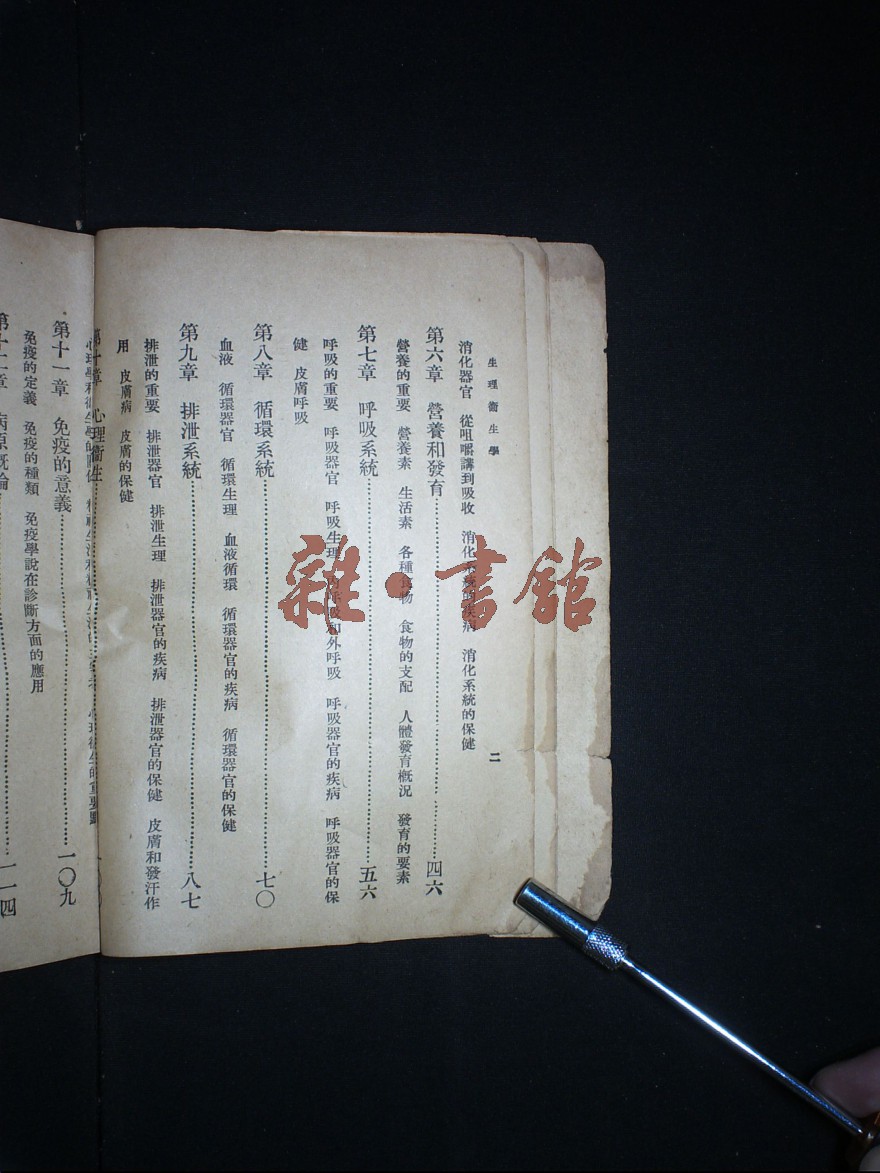 生理衞生學
二
消化器官　從咀嚼講到吸收　消化系統的疾病　消化系統的保健
第六章　營養和發育……四六
營養的重要　營養素　生活素　各種食物　食物的支配　人體發育槪況　發育的要素
第七章　呼吸系統……五六
呼吸的重要　呼吸器官　呼吸生理　內呼吸和外呼吸　呼吸器官的疾病　呼吸器官的保
健　皮膚呼吸
第八章　循環系統……七〇
血液　循環器官　循環生理　血液循環　循環器官的疾病　循環器官的保健
第九章　排泄系統……八七
排泄的重要　排泄器官　排泄生理　排泄器官的疾病　排泄器官的保健　皮膚和發汗作
用　皮膚病　皮膚的保健
第十章　心理衞生……
第十一章　免疫的意義……一〇九
免疫的定義　免疫的種類　免疫學說在診斷方面的應用
第十二章　病原槪論……一一四
雜·書館